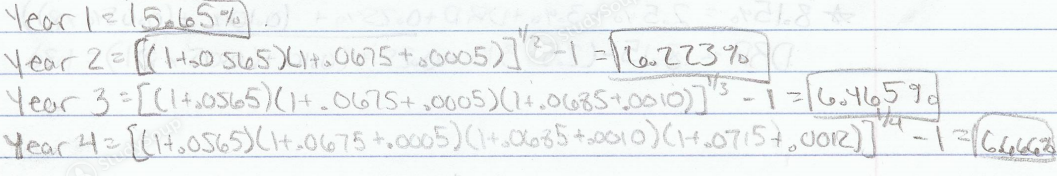 Year 1 = 5.65%.
Year 2 = [(1+.0565)(1+.0675+.0005)]^1/2 - 1 = 6.223%
Year 3 = [(1+.0565)(1+.0675+.0005)(1+.0685+.0010)]^1/3 - 1 = 6.465%
Year 4 = [(1+.0565)(1+.0675+.0005)(1+.0685+.0010)(1+.0715+.0012)]^1/4 - 1 =